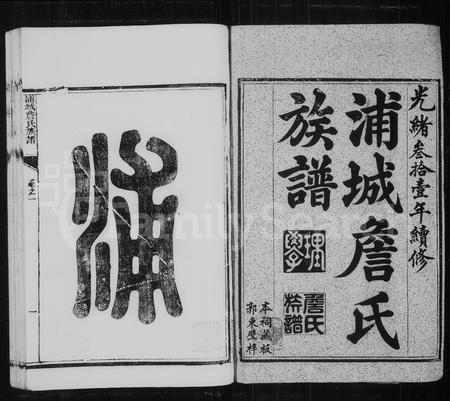 光緒叁拾壹年續修
浦城詹氏
族譜
詹氏
族譜
理學
本祠藏板
郭東壁梓
浦
浦城詹氏族譜
卷之一
一
FamilySearch